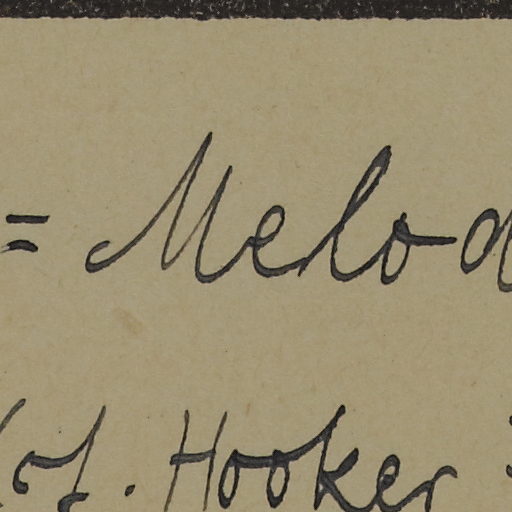 = Melod
cf. Hooker